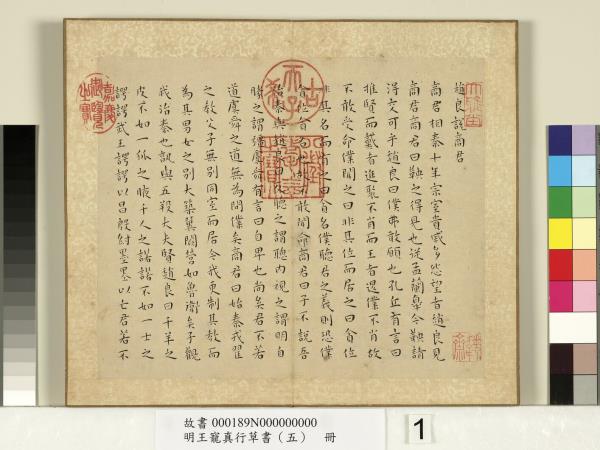 趙良說商君
商君相秦十年宗室貴戚多怨望者趙良見
商君商君曰鞅之得見也從孟蘭皋今鞅請
得交可乎趙良曰僕弗敢願也孔丘有言曰
推賢而戴者進聚不肖而王者退僕不肖故
不敢受命僕聞之曰非其位而居之曰貪位
非其名而有之曰貪名僕聽君之義則恐僕
貪位貪名也故不敢聞命商君曰子不說吾
治秦與趙良曰反聽之謂聰內視之謂明自
勝之謂彊虞舜有言曰自卑也尚矣君不若
道虞舜之道無為問僕矣商君曰始秦戎翟
之教父子無別同室而居今我更制其教而
為其男女之別大築冀闕營如魯衛矣子觀
我治秦也孰與五羖大夫賢趙良曰千羊之
皮不如一狐之腋千人之諾諾不如一士之
諤諤武王諤諤以昌殷紂墨墨以亡君若不
古希天子
嘉慶御覽之寶
故書 000189N000000000
明王寵真行草書（五） 冊
1